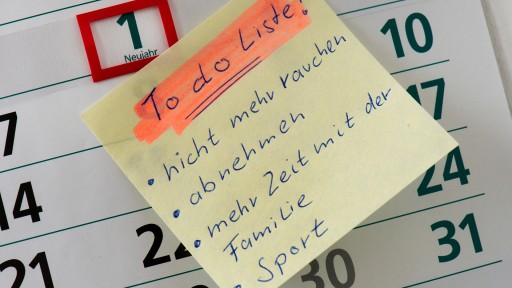 1
Neujahr
10
To do Liste!
• nicht mehr rauchen
• abnehmen
• mehr Zeit mit der
Familie
• Sport
7
17
14
22
24
21
30
31